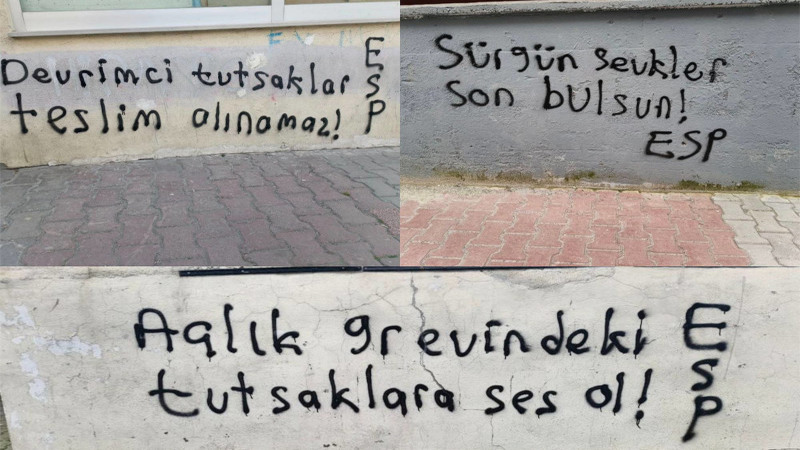 Devrimci tutsaklar
teslim alınamaz!
ESP
Sürgün sevkler
son bulsun!
ESP
Açlık grevindeki
tutsaklara ses ol!
ESP